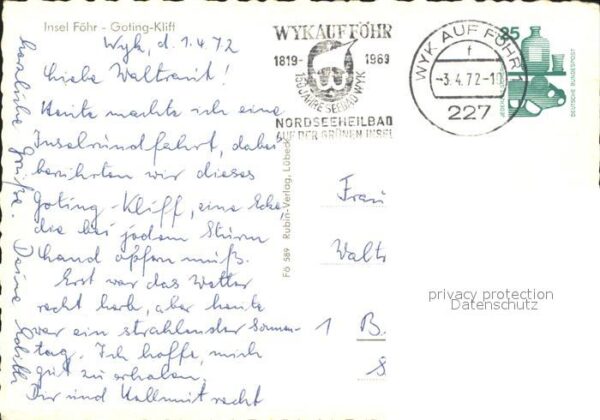 Insel Föhr - Goting-Kliff
Wyk, d. 1.4.72
Liebe Waltraut!
Heute machte ich eine
Inselrundfahrt, dabei
berührten wir dieses
Goting-Kliff, eine Ecke
die bei jedem Sturm
Land opfern muß.
Erst war das Wetter
recht herb, aber heute
war ein strahlender Sonnen-
tag. Ich hoffe, mich
gut zu erholen,
Dir und Hellmut recht
herzliche Grüße. Deine Edith
WYK AUF FÖHR
1819- 1969
150 JAHRE SEEBAD WYK
NORDSEEHEILBAD
AUF DER GRÜNEN INSEL
WYK AUF FÖHR
f
-3.4.72-10
227
25
DEUTSCHE BUNDESPOST
Fö 589 Rubin-Verlag, Lübeck
Frau
Waltr
1 B.
privacy protection
Datenschutz